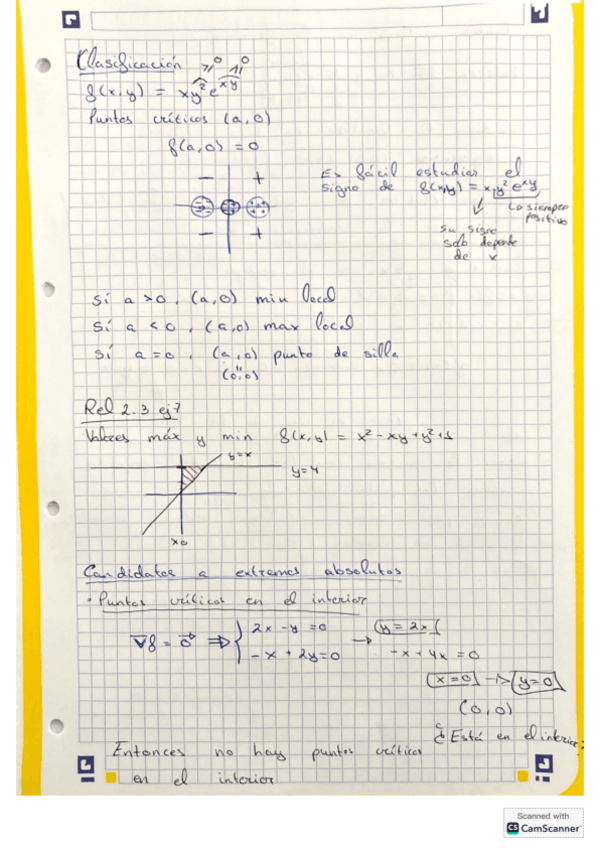 Clasificación ≥0 ≥0
f(x,y) = xy²e^xy
Puntos críticos (a,0)
f(a,0) = 0
Es fácil estudiar el
signo de f(x,y) = x y² e^xy
↳ siempre
positivo
Su signo
solo depende
de x
− +
− +
Sí a > 0, (a,0) min local
Sí a < 0, (a,0) max local
Sí a = 0, (a,0) punto de silla
(0,0)
Rel 2.3 ej 7
Valores máx y min f(x,y) = x² - xy + y² + 1
y=x
y=4
x=0
Candidatos a extremos absolutos
· Puntos críticos en el interior
∇f = 0⃗ ⇒ { 2x - y = 0 → y = 2x
-x + 2y = 0 -x + 4x = 0
x = 0 → y = 0
(0,0)
¿Está en el interior?
Entonces no hay puntos críticos
en el interior
Scanned with
CS CamScanner